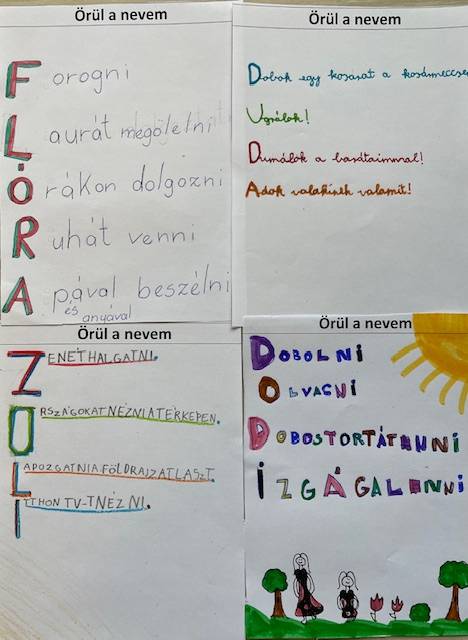 Örül a nevem
Forogni
Laurát megölelni
Órákon dolgozni
Ruhát venni
Apával beszélni
és anyával
Örül a nevem
Dobok egy kosarat a kosármeccsen
Ugrálok!
Dumálok a barátaimmal!
Adok valakinek valamit!
Örül a nevem
ZENÉT HALGATNI.
ORSZÁGOKAT NÉZNI A TÉRKÉPEN.
LAPOZGATNI A FÖLDRAJZ ATLASZT.
ITTHON TV-T NÉZNI.
Örül a nevem
DOBOLNI
OLVASNI
DOBOSTORTÁT ENNI
IZGÁGA LENNI